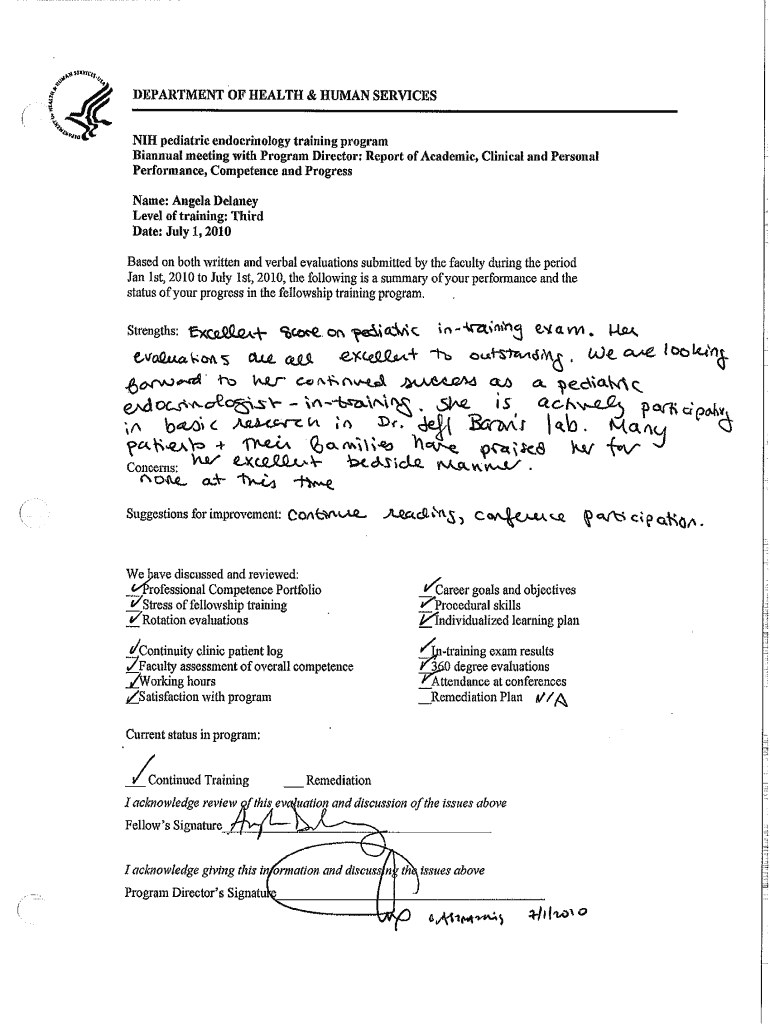 DEPARTMENT OF HEALTH & HUMAN SERVICES
DEPARTMENT OF HEALTH & HUMAN SERVICES·USA
NIH pediatric endocrinology training program
Biannual meeting with Program Director: Report of Academic, Clinical and Personal
Performance, Competence and Progress
Name: Angela Delaney
Level of training: Third
Date: July 1, 2010
Based on both written and verbal evaluations submitted by the faculty during the period
Jan 1st, 2010 to July 1st, 2010, the following is a summary of your performance and the
status of your progress in the fellowship training program.
Strengths: Excellent score on pediatric in-training exam. Her
evaluations are all excellent to outstanding. We are looking
forward to her continued success as a pediatric
endocrinologist-in-training. She is actively participating
in basic research in Dr. Jeff Baron's lab. Many
patients + their families have praised her for
her excellent bedside manner.
Concerns:
none at this time
Suggestions for improvement: Continue reading, conference participation.
We have discussed and reviewed:
✓ Professional Competence Portfolio
✓ Stress of fellowship training
✓ Rotation evaluations
✓ Continuity clinic patient log
✓ Faculty assessment of overall competence
✓ Working hours
✓ Satisfaction with program
✓ Career goals and objectives
✓ Procedural skills
✓ Individualized learning plan
✓ In-training exam results
✓ 360 degree evaluations
✓ Attendance at conferences
__Remediation Plan N/A
Current status in program:
✓ Continued Training ___ Remediation
I acknowledge review of this evaluation and discussion of the issues above
Fellow's Signature
I acknowledge giving this information and discussing the issues above
Program Director's Signature
7/1/2010